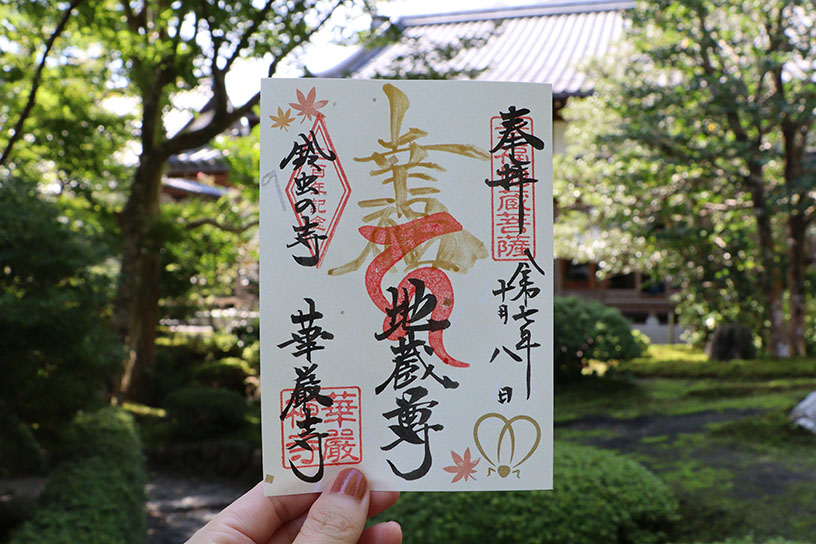 奉拝
幸福地蔵菩薩
令和七年
十月八日
幸福
地蔵尊
鈴虫の寺
年記念
華厳寺
華嚴禅寺